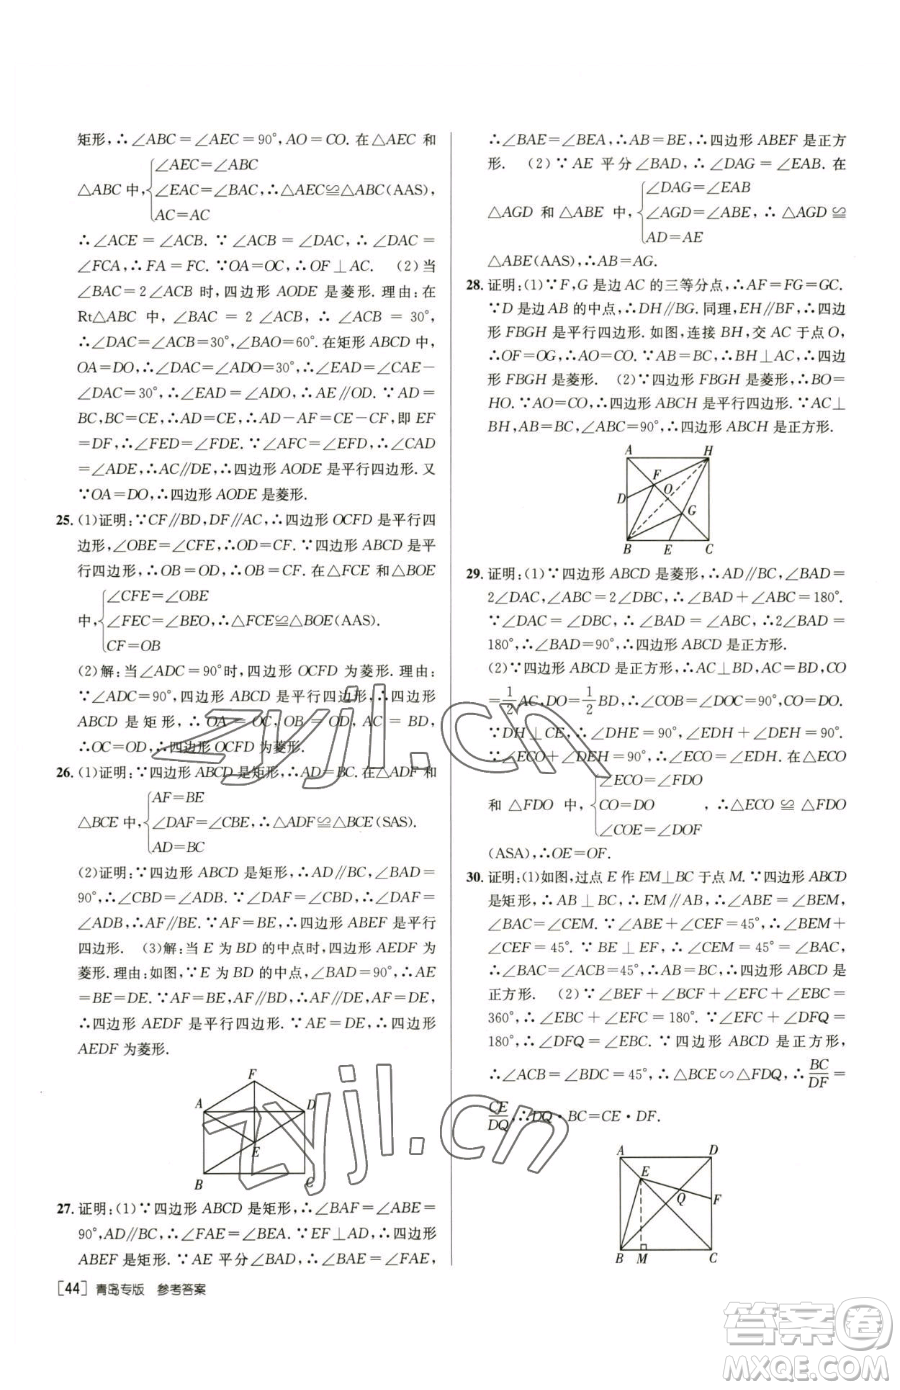 矩形,∴∠ABC=∠AEC=90°,AO=CO.在△AEC 和
△ABC中,{∠AEC=∠ABC
∠EAC=∠BAC,∴△AEC≌△ABC(AAS),
AC=AC
∴∠ACE=∠ACB.∵∠ACB=∠DAC,∴∠DAC=
∠FCA,∴FA=FC.∵OA=OC,∴OF⊥AC. (2)当
∠BAC=2∠ACB时,四边形AODE是菱形.理由:在
Rt△ABC 中,∠BAC=2∠ACB,∴∠ACB=30°,
∴∠DAC=∠ACB=30°,∠BAO=60°.在矩形ABCD中,
OA=OD,∴∠DAC=∠ADO=30°,∴∠EAD=∠CAE-
∠DAC=30°,∴∠EAD=∠ADO,∴AE∥OD.∵AD=
BC,BC=CE,∴AD=CE,∴AD-AF=CE-CF,即EF
=DF,∴∠FED=∠FDE.∵∠AFC=∠EFD,∴∠CAD
=∠ADE,∴AC∥DE,∴四边形AODE是平行四边形.又
∵OA=DO,∴四边形AODE是菱形.
25.(1)证明:∵CF∥BD,DF∥AC,∴四边形OCFD是平行四
边形,∠OBE=∠CFE,∴OD=CF.∵四边形ABCD是平
行四边形,∴OB=OD,∴OB=CF.在△FCE和△BOE
中,{∠CFE=∠OBE
∠FEC=∠BEO,∴△FCE≌△BOE(AAS).
CF=OB
(2)解:当∠ADC=90°时,四边形OCFD为菱形.理由:
∵∠ADC=90°,四边形ABCD是平行四边形,∴四边形
ABCD 是矩形,∴OA=OC,OB=OD,AC=BD,
∴OC=OD,∴四边形OCFD为菱形.
26.(1)证明:∵四边形ABCD是矩形,∴AD=BC.在△ADF和
△BCE中,{AF=BE
∠DAF=∠CBE,∴△ADF≌△BCE(SAS).
AD=BC
(2)证明:∵四边形ABCD是矩形,∴AD∥BC,∠BAD=
90°,∴∠CBD=∠ADB.∵∠DAF=∠CBE,∴∠DAF=∠
ADB,∴AF∥BE.∵AF=BE,∴四边形ABEF是平行
四边形. (3)解:当E为BD的中点时,四边形AEDF为
菱形.理由:如图,∵E为BD的中点,∠BAD=90°,∴AE
=BE=DE.∵AF=BE,AF∥BE,∴AF=DE,∴四边
形AEDF是平行四边形.∵AE=DE,∴平行四边形
AEDF为菱形.
F
A
D
E
B
C
27.证明:(1)∵四边形ABCD是矩形,∴∠BAF=∠ABE=
90°,AD∥BC,∴∠FAE=∠BEA.∵EF⊥AD,∴四边形
ABEF是矩形.∵AE平分∠BAD,∴∠BAE=∠FAE,
[44]青岛专版 参考答案
∴∠BAE=∠BEA,∴AB=BE,∴四边形ABEF是正方
形. (2)∵AE平分∠BAD,∴∠DAG=∠EAB.在
△AGD和△ABE中,{∠DAG=∠EAB
∠AGD=∠ABE,∴△AGD≌
AD=AE
△ABE(AAS),∴AB=AG.
28.证明:(1)∵F,G是边AC的三等分点,∴AF=FG=GC.
∵D是边AB的中点,∴DH∥BG.同理,EH∥BF,∴四边
形FBGH是平行四边形.如图,连接BH,交AC于点O,
∴OF=OG,∴AO=CO.∵AB=BC,∴BH⊥AC,∴四边
形FBGH是菱形. (2)∵四边形FBGH是菱形,∴BO=
HO.∵AO=CO,∴四边形ABCH是平行四边形.∵AC⊥
BH,AB=BC,∠ABC=90°,∴四边形ABCH是正方形.
A
H
F
O
D
G
B
E
C
29.证明:(1)∵四边形ABCD是菱形,∴AD∥BC,∠BAD=
2∠DAC,∠ABC=2∠DBC,∴∠BAD+∠ABC=180°.
∵∠DAC=∠DBC,∴∠BAD=∠ABC,∴2∠BAD=
180°,∴∠BAD=90°,∴四边形ABCD是正方形.
(2)∵四边形ABCD是正方形,∴AC⊥BD,AC=BD,CO
=1/2AC,DO=1/2BD,∴∠COB=∠DOC=90°,CO=DO.
∵DH⊥CE,∴∠DHE=90°,∴∠EDH+∠DEH=90°.
∵∠ECO+∠DEH=90°,∴∠ECO=∠EDH.在△ECO
和△FDO中,{∠ECO=∠FDO
CO=DO ,∴△ECO≌△FDO
∠COE=∠DOF
(ASA),∴OE=OF.
30.证明:(1)如图,过点E作EM⊥BC于点M.∵四边形ABCD
是矩形,∴AB⊥BC,∴EM∥AB,∴∠ABE=∠BEM,
∠BAC=∠CEM.∵∠ABE+∠CEF=45°,∴∠BEM+
∠CEF=45°.∵BE⊥EF,∴∠CEM=45°=∠BAC,
∴∠ACB=∠BAC=45°,∴AB=BC,∴四边形ABCD是
正方形. (2)∵∠BEF+∠BCF+∠EFC+∠EBC=
360°,∴∠EBC+∠EFC=180°.∵∠EFC+∠DFQ=
180°,∴∠DFQ=∠EBC.∵四边形ABCD是正方形,
∴∠ACB=∠BDC=45°,∴△BCE∽△FDQ,∴BC/DF=
CE/DQ,∴DQ·BC=CE·DF.
A
D
E
Q
F
B
M
C
zyjl.cn
zyjl.cn
答案圈
MXQE.COM